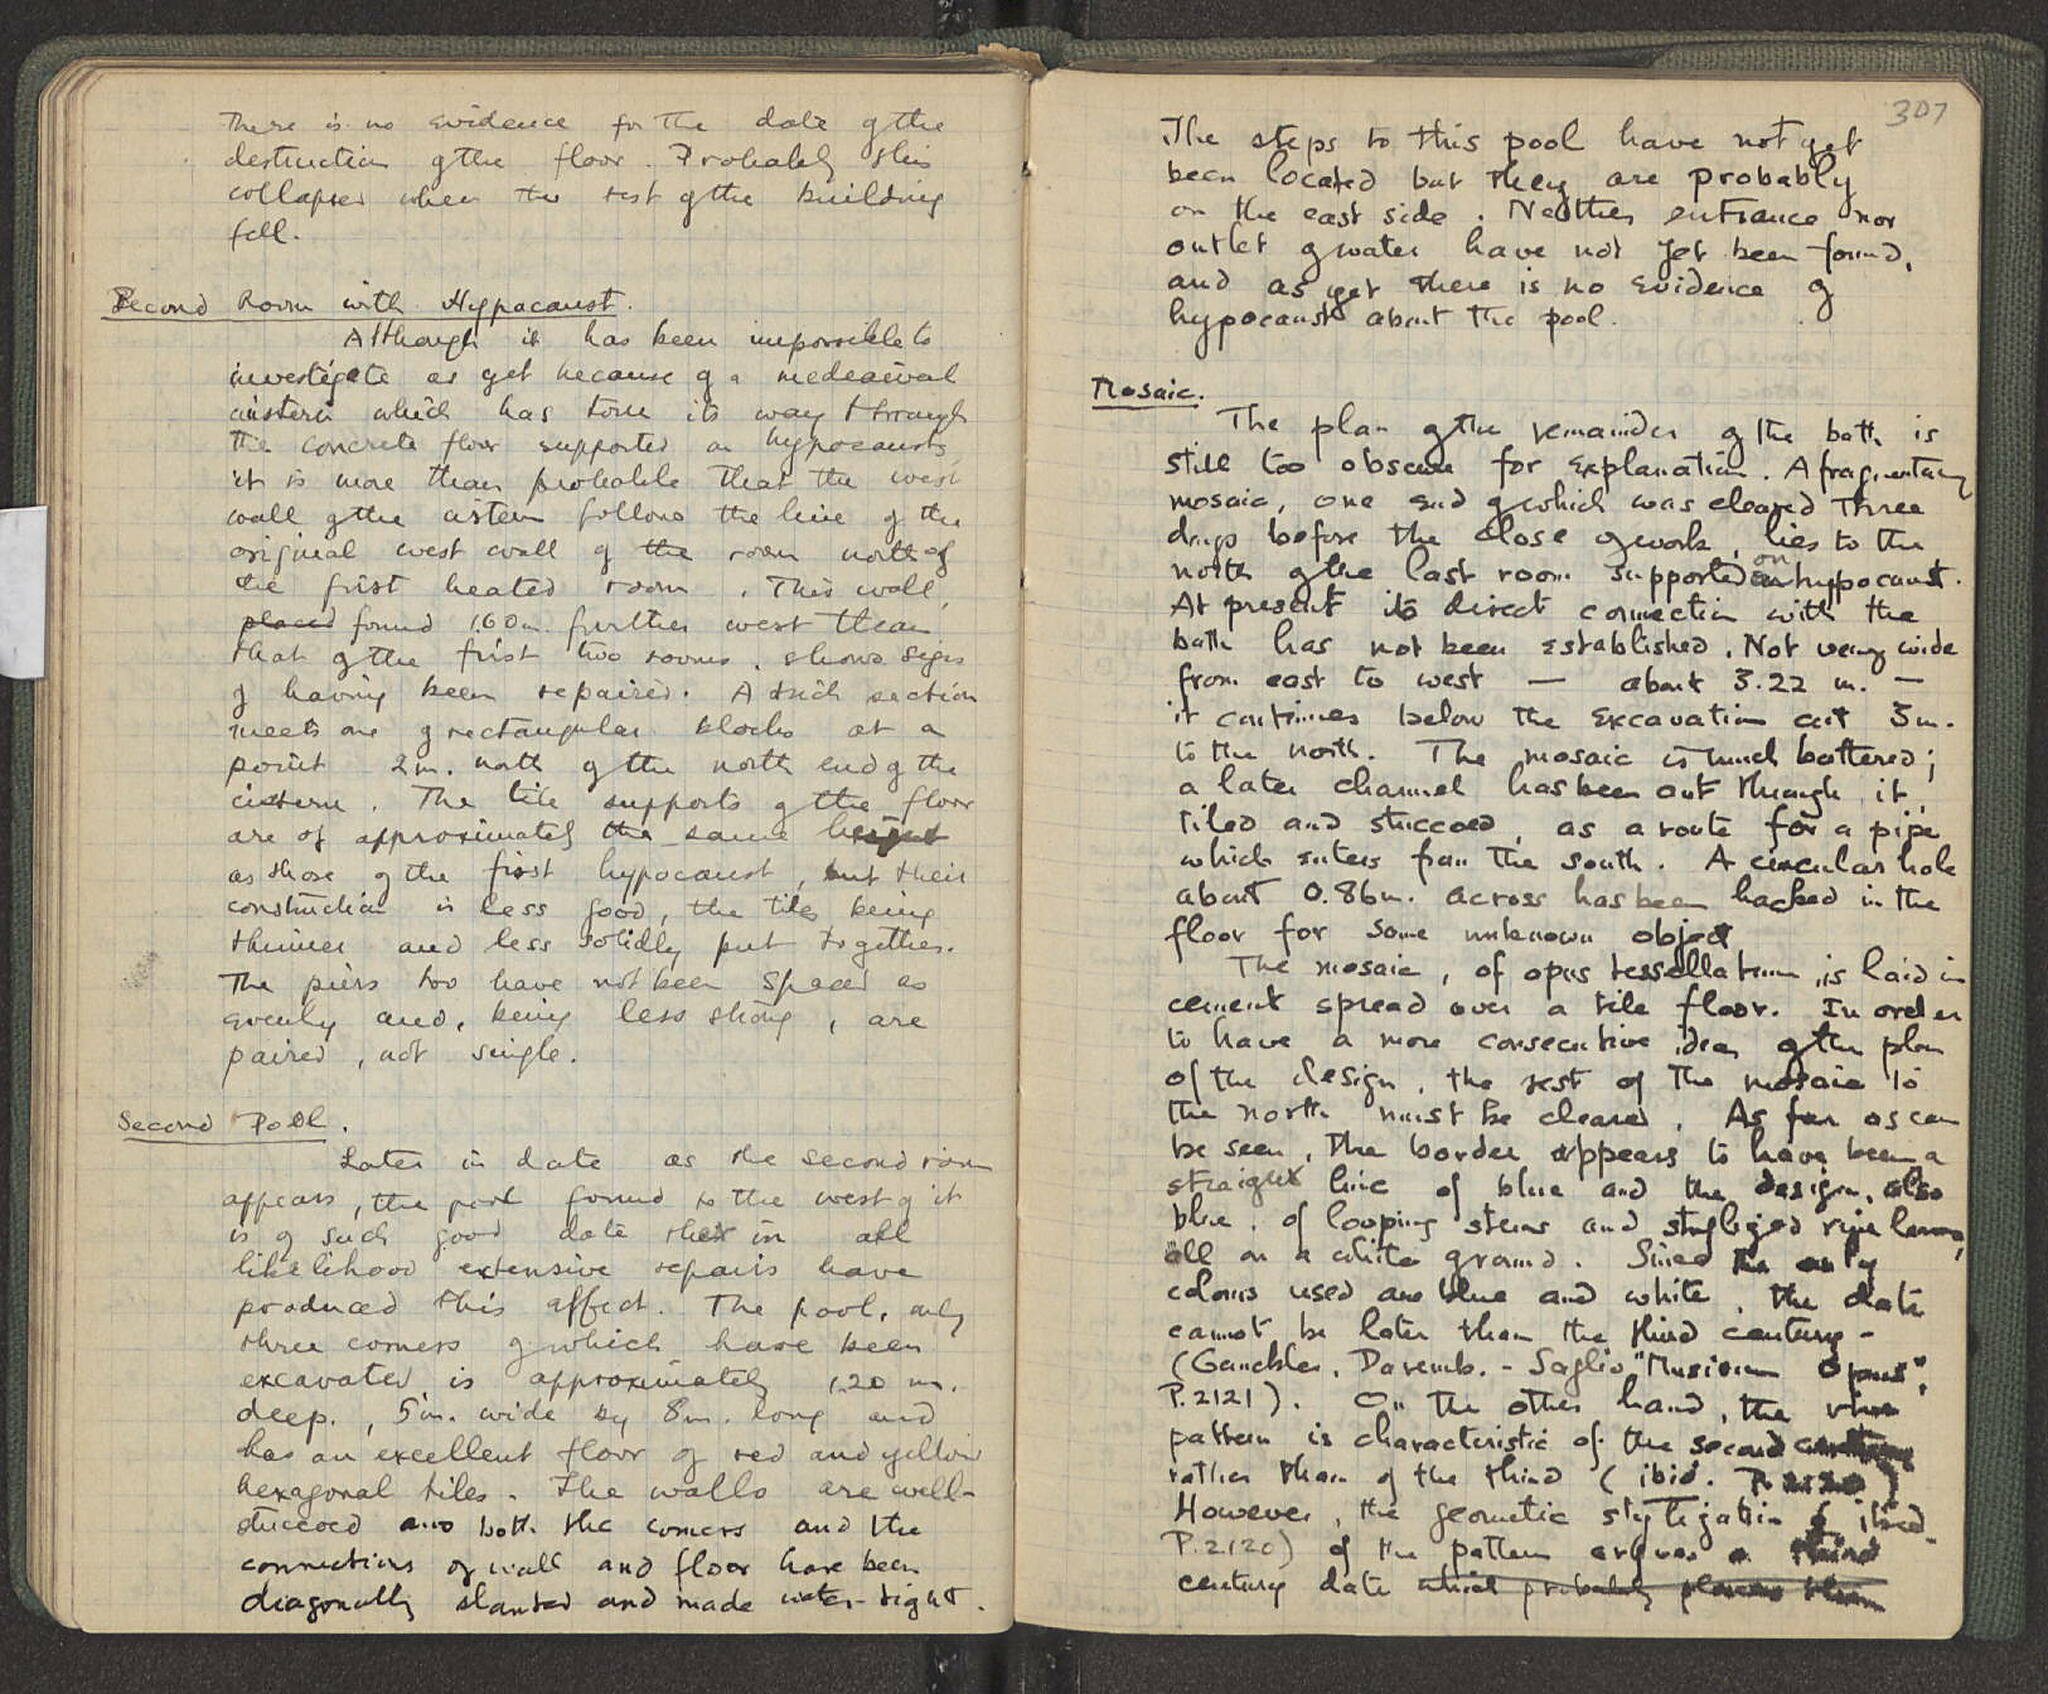 There is no evidence for the date of the
destruction of the floor. Probably this
collapsed when the rest of the building
fell.
Second Room with Hypocaust.
Although it has been impossible to
investigate as yet because of a medeaival
cistern which has torn its way through
the concrete floor supported on hypocausts
it is more than probable that the west
wall of the cistern follows the line of the
original west wall of the room north of
the first heated room. This wall,
placed found 1.60m. further west than
that of the first two rooms, shows signs
of having been repaired. A brick section
meets one of rectangular blocks at a
point 2m. north of the north end of the
cistern. The tile supports of the floor
are of approximately the same height
as those of the first hypocaust, but their
construction is less good, the tiles being
thinner and less solidly put together.
The piers too have not been spaced as
evenly and, being less strong, are
paired, not single.
Second Pool.
Later in date as the second room
appears, the pool found to the west of it
is of such good date that in all
likelihood extensive repairs have
produced this affect. The pool, only
three corners of which have been
excavated is approximately 1.20 m.
deep., 5m. wide by 8m. long and
has an excellent floor of red and yellow
hexagonal tiles. The walls are well-
stuccoed and both the corners and the
connections of wall and floor have been
diagonally slanted and made water-tight.
307
The steps to this pool have not yet
been located but they are probably
on the east side. Neither entrance nor
outlet of water have not yet been found,
and as yet there is no evidence of
hypocausts about the pool.
Mosaic.
The plan of the remainder of the bath is
still too obscure for explanation. A fragmentary
mosaic, one end of which was cleared three
days before the close of work, lies to the
north of the last room supported on hypocaust.
At present its direct connection with the
bath has not been established. Not very wide
from east to west — about 3.22 m. —
it continues below the excavation cut 5m.
to the north. The mosaic is much battered;
a later channel has been cut through it,
tiled and stuccoed, as a route for a pipe
which enters from the south. A circular hole
about 0.86m. across has been hacked in the
floor for some unknown object
The mosaic, of opus tessellatum, is laid in
cement spread over a tile floor. In order
to have a more consecutive idea of the plan
of the design, the rest of the mosaic to
the north must be cleared. As far as can
be seen, the border appears to have been a
straight line of blue and the design, also
blue, of looping stems and stylized vine leaves,
all on a white ground. Since the only
colours used are blue and white, the date
cannot be later than the third century -
(Gauckler, Daremb. - Saglio "Musivum Opus",
P.2121). On the other hand, the vine
pattern is characteristic of the second century
rather than of the third (ibid. P. 2120)
However, the geometric stylization (ibid.
P.2120) of the pattern argues a third
century date which probably places them